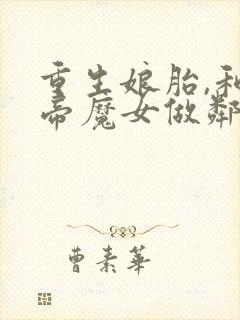 重生娘胎,和
帝魔女做鄰
曹素華